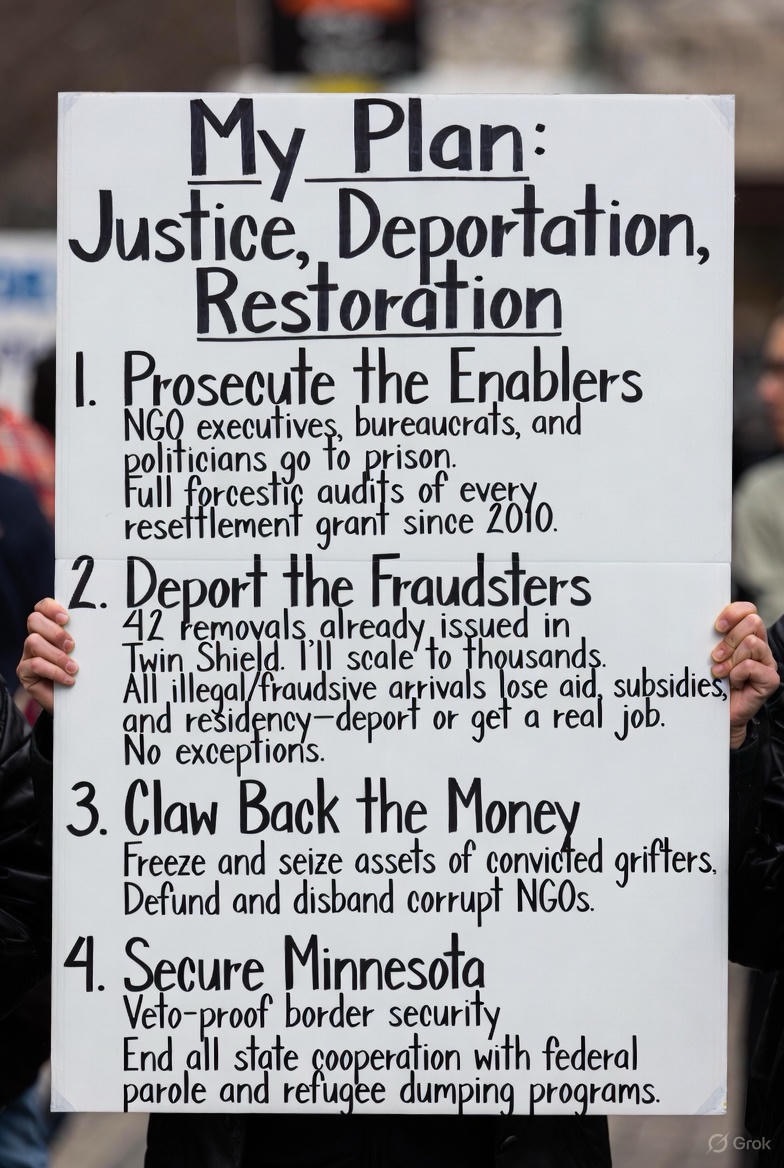 My Plan:
Justice, Deportation,
Restoration
1. Prosecute the Enablers
NGO executives, bureaucrats, and
politicians go to prison.
Full forcestic audits of every
resettlement grant since 2010.
2. Deport the Fraudsters
42 removals already issued in
Twin Shield. I'll scale to thousands.
All illegal/fraudsive arrivals lose aid, subsidies,
and residency—deport or get a real job.
No exceptions.
3. Claw Back the Money
Freeze and seize assets of convicted grifters.
Defund and disband corrupt NGOs.
4. Secure Minnesota
Veto-proof border security
End all state cooperation with federal
parole and refugee dumping programs.
Grok